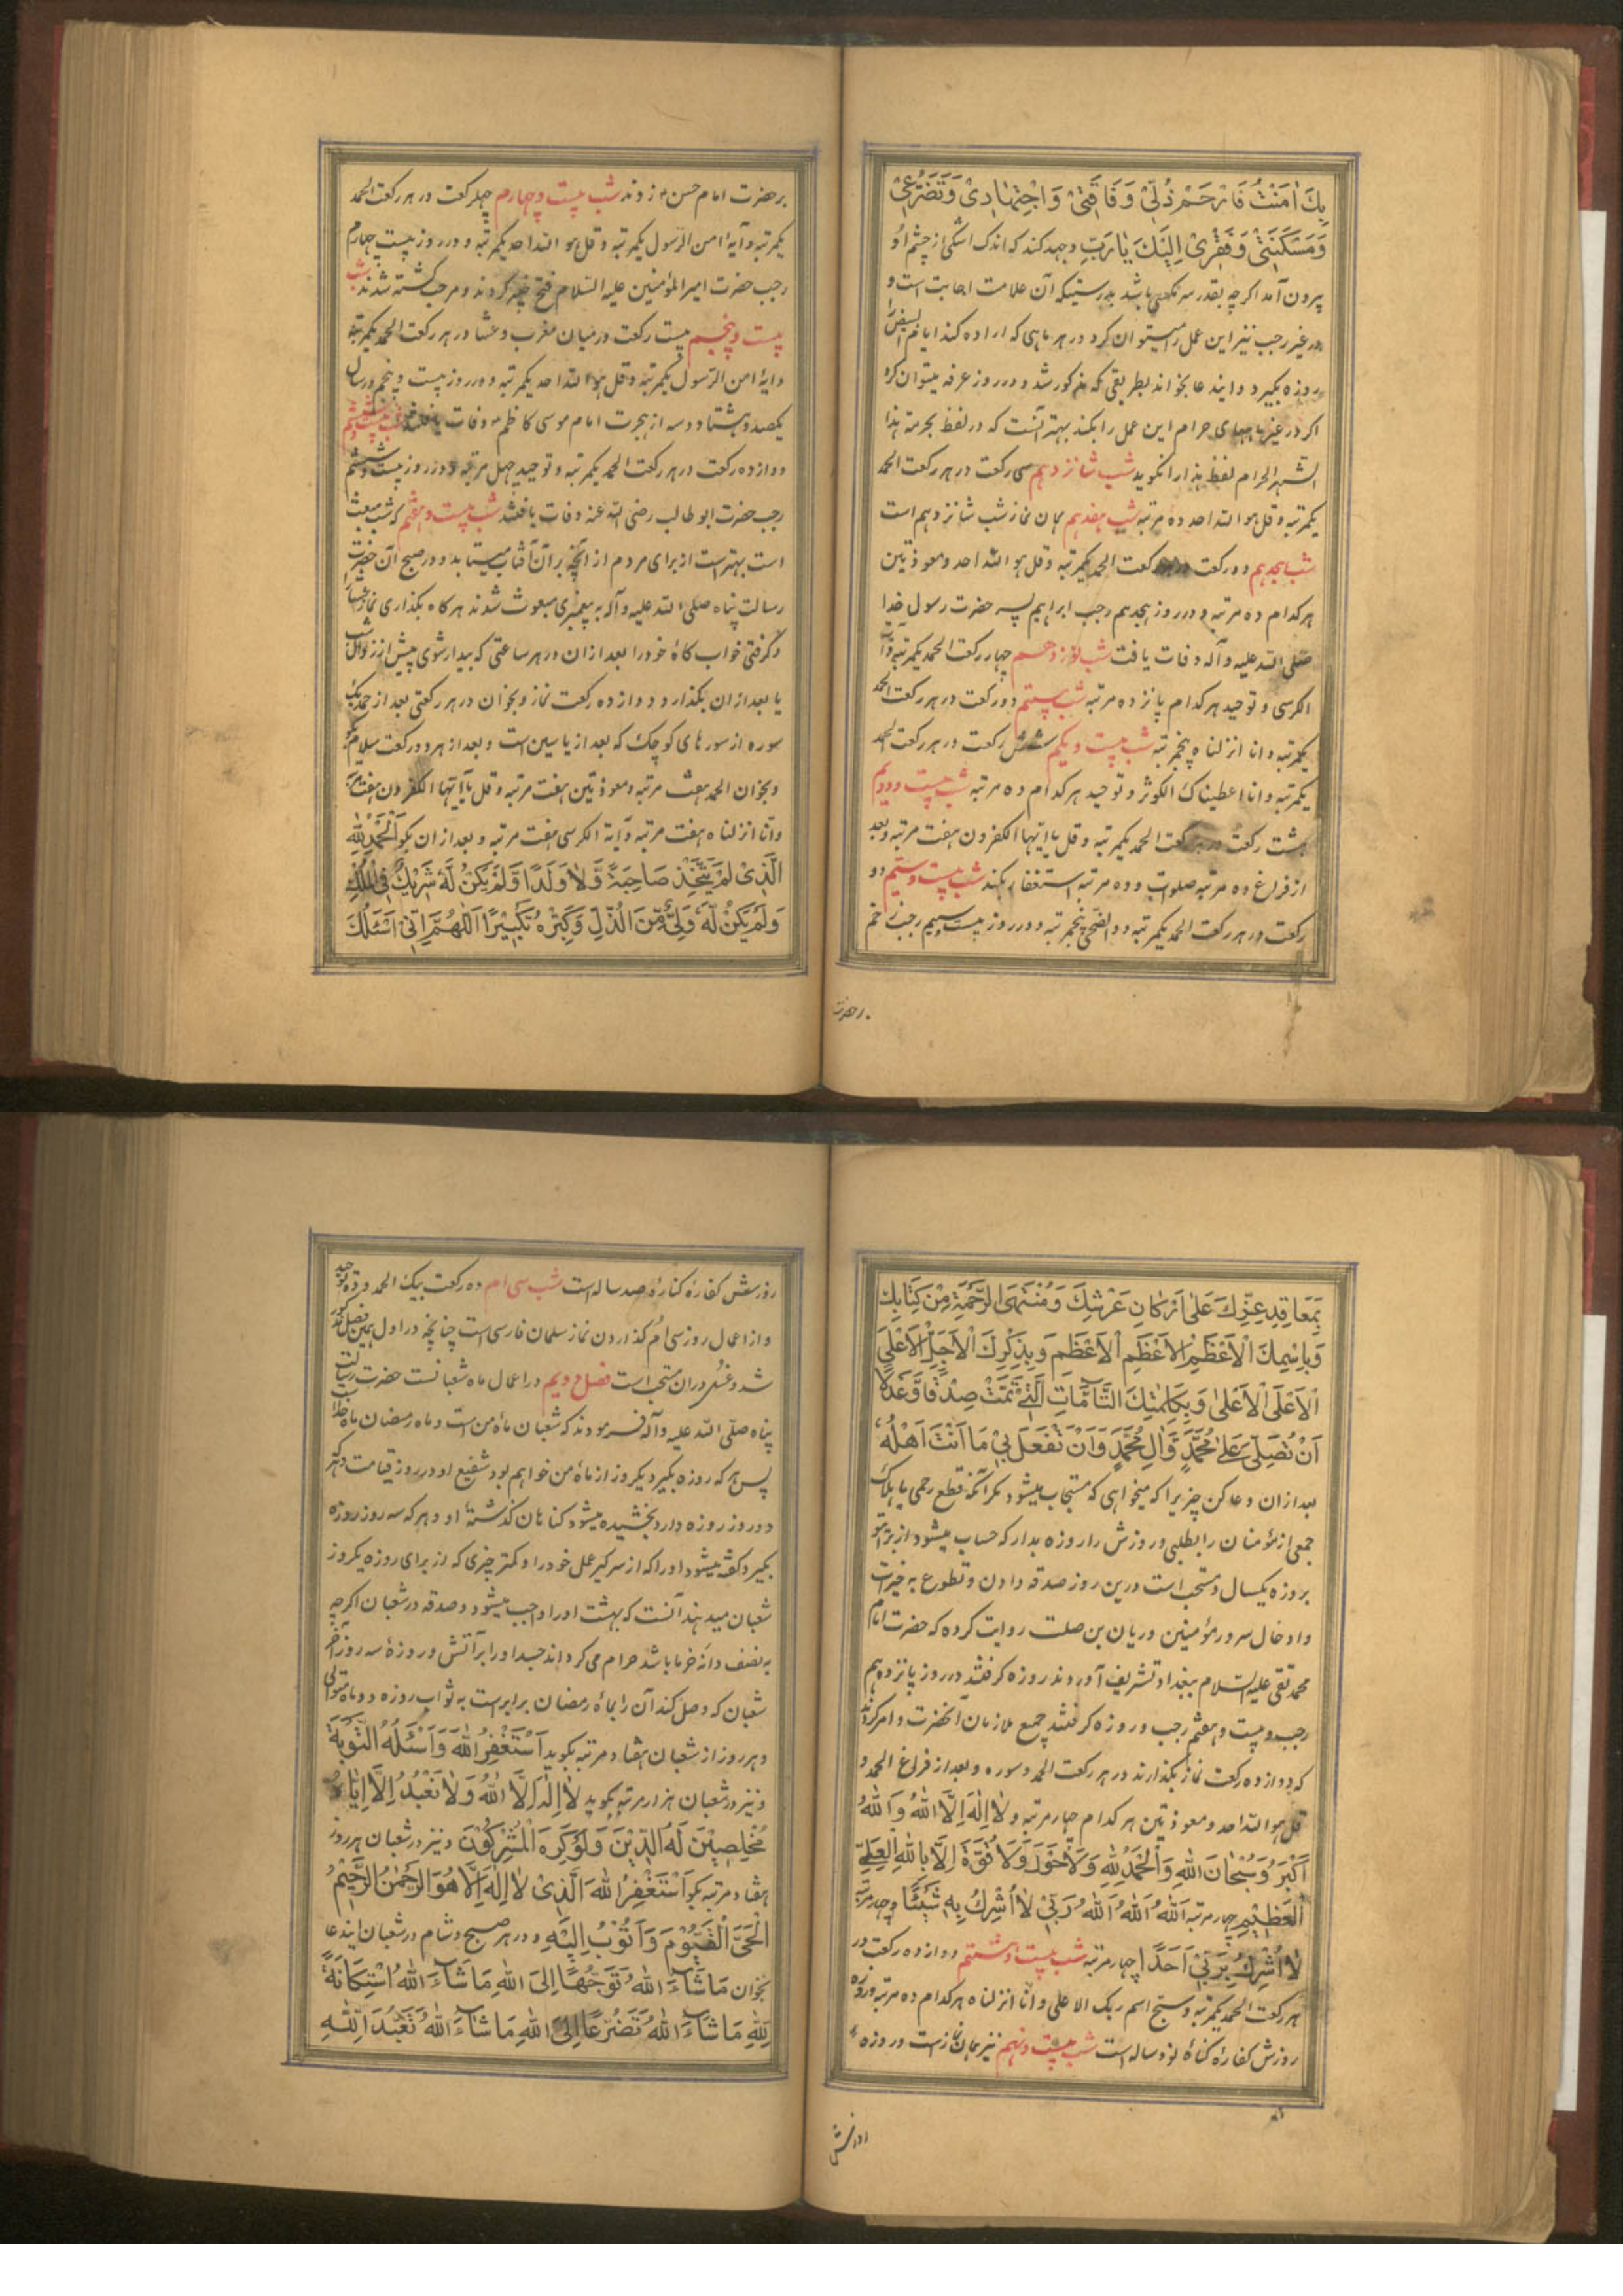 بِكَ اٰمَنْتُ فَارْحَمْ ذُلّیْ وَفَاقَتیْ وَاجْتِهٰادِیْ وَتَضَرُّعیْ
وَمَسْكَنَتیْ وَفَقْرِیْ اِلَیْكَ یٰارَبِّ وجهد کند که اندک اشکی از چشم او
بیرون آمد اکرچه بقدر سر مکسی باشد بدرستیکه آن علامت اجابت است و
در غیر رجب نیز این عمل را میتوان کرد در هر ماهی که اراده کند ایام البیض
روزه بکیرد و ایندعا بخواند بطریقی که مذکور شد و در روز عرفه میتوان کرد
اکر در غیر ماههای حرام این عمل را بکند بهتر آنست که در لفظ بحرمة هذا
الشهر الحرام لفظ هذا را نکوید شب شانزدهم سی رکعت در هر رکعت الحمد
یکمرتبه و قل هو الله احد ده مرتبه شب هفدهم همان نماز شب شانزدهم است
شب هجدهم دو رکعت در هر رکعت الحمد یکمرتبه و قل هو الله احد و معوذتین
هر کدام ده مرتبه و در روز هجدهم رجب ابراهیم پسر حضرت رسول خدا
صلی الله علیه و آله وفات یافت شب نوزدهم چهار رکعت الحمد یکمرتبه و آیة
الکرسی و توحید هر کدام پانزده مرتبه شب بیستم دو رکعت در هر رکعت الحمد
یکمرتبه و انا انزلناه پنجمرتبه شب بیست و یکم شش رکعت در هر رکعت الحمد
یکمرتبه و انا اعطیناک الکوثر و توحید هر کدام ده مرتبه شب بیست و دویم
هشت رکعت در هر رکعت الحمد یکمرتبه و قل یا ایها الکفرون هفت مرتبه و بعد
از فراغ ده مرتبه صلوات و ده مرتبه استغفار بکند شب بیست و سیم دو
رکعت در هر رکعت الحمد یکمرتبه و والضحی پنجمرتبه و در روز بیست و سیم رجب زخم
بر حضرت
بر حضرت امام حسن ع زدند شب بیست و چهارم چهل رکعت در هر رکعت الحمد
یکمرتبه و آیۀ امن الرسول یکمرتبه و قل هو الله احد یکمرتبه و در روز بیست چهارم
رجب حضرت امیر المؤمنین علیه السلام فتح خیبر کردند و مرحب کشته شد شب
بیست و پنجم بیست رکعت در میان مغرب و عشا در هر رکعت الحمد یکمرتبه
و ایۀ امن الرسول یکمرتبه و قل هو الله احد یکمرتبه و در روز بیست و پنجم در سال
یکصد و هشتاد و سه از هجرت امام موسی کاظم ع وفات یافتند شب بیست و ششم
دوازده رکعت در هر رکعت الحمد یکمرتبه و توحید چهل مرتبه و در روز بیست و ششم
رجب حضرت ابو طالب رضی الله عنه وفات یافتند شب بیست و هفتم که شب مبعث
است بهتر است از برای مردم از آنچه بر آن آفتاب میتابد و در صبح آن حضرت
رسالت پناه صلی الله علیه و آله به پیغمبری مبعوث شدند هرکاه بکذاری نماز عشا
و کرفتی خواب کاه خود را بعد از ان در هر ساعتی که بیدار شوی پیش از زوال شب
یا بعد از ان بکذار دوازده رکعت نماز و بخوان در هر رکعتی بعد از حمد یک
سوره از سورهای کوچک که بعد از یاسین است و بعد از هر دو رکعت سلام بکو
و بخوان الحمد هفت مرتبه و معوذتین هفت مرتبه و قل یا ایها الکفرون هفت مرتبه
و انا انزلناه هفت مرتبه و آیة الکرسی هفت مرتبه و بعد از ان بکو اَلْحَمْدُ لِلّٰهِ
الَّذِیْ لَمْ یَتَّخِذْ صَاحِبَةً وَّلاٰ وَلَدًا وَّلَمْ یَكُنْ لَهُ شَرِیْكٌ فِی الْمُلْكِ
وَلَمْ یَكُنْ لَّهُ وَلِیٌّ مِّنَ الذُّلِّ وَكَبِّرْهُ تَكْبِیْرًا اَللّٰهُمَّ اِنّیْ اَسْئَلُكَ
بِمَعَاقِدِ عِزِّكَ عَلٰی اَرْكَانِ عَرْشِكَ وَمُنْتَهَی الرَّحْمَةِ مِنْ كِتَابِكَ
وَبِاِسْمِكَ الْاَعْظَمِ الْاَعْظَمِ الْاَعْظَمِ وَبِذِكْرِكَ الْاَجَلِّ الْاَعْلَی
الْاَعْلَی الْاَعْلٰی وَبِكَلِمٰتِكَ التَّامَّاتِ الَّتِیْ تَمَّتْ صِدْقًا وَّعَدْلًا
اَنْ تُصَلِّیَ عَلٰی مُحَمَّدٍ وَّاٰلِ مُحَمَّدٍ وَاَنْ تَفْعَلَ بیْ مَا اَنْتَ اَهْلُهُ
بعد از ان دعا کن چیزیرا که میخواهی که مستجاب میشود مکر آنکه قطع رحمی یا هلاک
جمعی از مؤمنان را بطلبی و روزش را روزه بدار که حساب میشود از برای تو
بروزه یکسال و مستحب است درین روز صدقه دادن و تطوع به خیرات
و ادخال سرور مؤمنین و ریان بن صلت روایت کرده که حضرت امام
محمد تقی علیه السلام ببغداد تشریف آوردند روزه کرفتند در روز پانزدهم
رجب و بیست و هفتم رجب و روزه کرفتند جمیع ملازمان آنحضرت و امر کردند
که دوازده رکعت نماز بکذارند در هر رکعت الحمد و سوره و بعد از فراغ الحمد و
قل هو الله احد و معوذتین هر کدام چهار مرتبه و لاٰ اِلٰهَ اِلَّا اللّٰهُ وَاللّٰهُ
اَكْبَرُ وَسُبْحَانَ اللّٰهِ وَالْحَمْدُ لِلّٰهِ وَلاٰ حَوْلَ وَلاٰ قُوَّةَ اِلَّا بِاللّٰهِ الْعَلِیِّ
الْعَظِیْمِ چهار مرتبه اَللّٰهُ اَللّٰهُ اَللّٰهُ رَبّیْ لاٰ اُشْرِكُ بِهِ شَیْئًا چهار مرتبه
لاٰ اُشْرِكُ بِرَبّیْ اَحَدًا چهار مرتبه شب بیست و هشتم دوازده رکعت در
هر رکعت الحمد یکمرتبه و سبح اسم ربک الاعلی و انا انزلناه هر کدام ده مرتبه و روزه
روزش کفارۀ کناۀ نود ساله است شب بیست و نهم نیز همان نماز است و روزه
روزش
روزش کفارۀ کناۀ صد ساله است شب سی ام ده رکعت بیک الحمد و ده توحید
و از اعمال روز سی ام کذاردن نماز سلمان فارسی است چنانچه در اول همین فصل مذکور
شد و غسل در ان مستحب است فصل دویم در اعمال ماه شعبانست حضرت رسالت
پناه صلی الله علیه و آله فرمودند که شعبان ماه من است و ماه رمضان ماه خدا
پس هر که روزه بکیرد یکروز از ماه من خواهم بود شفیع او در روز قیامت و هر که
دو روز روزه دارد بخشیده میشود کناهان کذشتۀ او و هر که سه روز روزه
بکیرد کفته میشود او را که از سر کیر عمل خود را و کمتر چیزی که از برای روزه یکروز
شعبان میدهند آنست که بهشت او را واجب میشود و صدقه در شعبان اکرچه
به نصف دانه خرما باشد حرام می کرداند جسد او را بر آتش و روزۀ سه روز آخر
شعبان که وصل کند آن را بماه رمضان برابرست به ثواب روزه دو ماه متوالی
و هر روز از شعبان هفتاد مرتبه بکوید اَسْتَغْفِرُ اللّٰهَ وَاَسْئَلُهُ التَّوْبَةَ
و نیز در شعبان هزار مرتبه بکوید لاٰ اِلٰهَ اِلَّا اللّٰهُ وَلاٰ نَعْبُدُ اِلَّا اِیَّاهُ
مُخْلِصِیْنَ لَهُ الدِّیْنَ وَلَوْ كَرِهَ الْمُشْرِكُوْنَ و نیز در شعبان هر روز
هفتاد مرتبه بکو اَسْتَغْفِرُ اللّٰهَ الَّذِیْ لاٰ اِلٰهَ اِلَّا هُوَ الرَّحْمٰنُ الرَّحِیْمُ
الْحَیُّ الْقَیُّوْمُ وَاَتُوْبُ اِلَیْهِ و در هر صبح و شام در شعبان ایندعا
بخوان مَاشَاءَ اللّٰهُ تَوَجُّهًا اِلَی اللّٰهِ مَاشَاءَ اللّٰهُ اسْتِكَانَةً
لِلّٰهِ مَاشَاءَ اللّٰهُ تَضَرُّعًا اِلَی اللّٰهِ مَاشَاءَ اللّٰهُ تَعَبُّدَ لِلّٰهِ